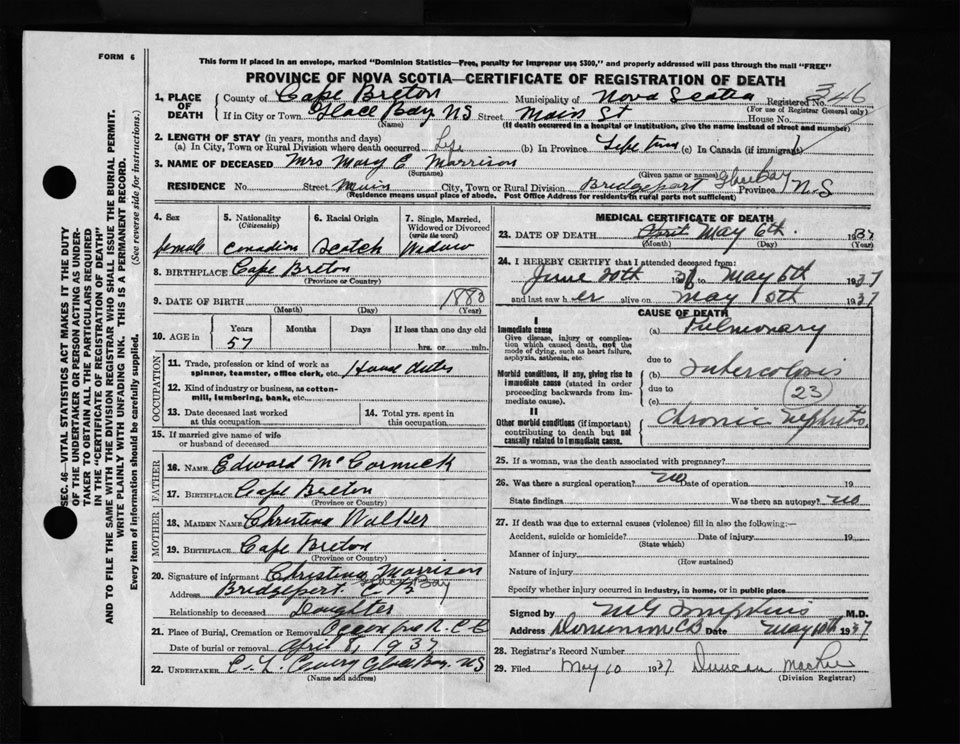 FORM 6
This form if placed in an envelope, marked "Dominion Statistics—Free, penalty for improper use $300," and properly addressed will pass through the mail "FREE"
PROVINCE OF NOVA SCOTIA—CERTIFICATE OF REGISTRATION OF DEATH
1. PLACE OF DEATH
County of Cape Breton Municipality of Nova Scotia Registered No. 346
(For use of Registrar General only)
If in City or Town Glace Bay NS Street Main St House No.
(Name) (If death occurred in a hospital or institution, give the name instead of street and number)
2. LENGTH OF STAY (in years, months and days)
(a) In City, Town or Rural Division where death occurred Life (b) In Province Life time (c) In Canada (if immigrant)
3. NAME OF DECEASED Mrs Mary E Morrison
(Surname) (Given name or names)
RESIDENCE No. Street Main City, Town or Rural Division Bridgeport Glace Bay Province N.S
(Residence means usual place of abode. Post Office Address for residents in rural parts not sufficient)
4. Sex female
5. Nationality (Citizenship) Canadian
6. Racial Origin Scotch
7. Single, Married, Widowed or Divorced (write the word) Widow
8. BIRTHPLACE Cape Breton
(Province or Country)
9. DATE OF BIRTH 1880
(Month) (Day) (Year)
10. AGE in Years Months Days If less than one day old
57 hrs. or min.
OCCUPATION
11. Trade, profession or kind of work as spinner, teamster, office clerk, etc. House duties
12. Kind of industry or business, as cotton-mill, lumbering, bank, etc.
13. Date deceased last worked at this occupation
14. Total yrs. spent in this occupation
15. If married give name of wife or husband of deceased
FATHER
16. NAME Edward McCormick
17. BIRTHPLACE Cape Breton
(Province or Country)
MOTHER
18. MAIDEN NAME Christina Walker
19. BIRTHPLACE Cape Breton
(Province or Country)
20. Signature of informant Christina Morrison
Address Bridgeport Glace Bay C B
Relationship to deceased Daughter
21. Place of Burial, Cremation or Removal
Date of burial or removal April 8, 1937
22. UNDERTAKER Glace Bay. NS
(Name and address)
MEDICAL CERTIFICATE OF DEATH
23. DATE OF DEATH April May 6th. 1937
(Month) (Day) (Year)
24. I HEREBY CERTIFY that I attended deceased from:
June 20th 36 to May 6th 1937
and last saw her alive on May 5th 1937
CAUSE OF DEATH
I
Immediate cause
Give disease, injury or complication which caused death, not the mode of dying, such as heart failure, asphyxia, asthenia, etc.
(a) Pulmonary
due to
Morbid conditions, if any, giving rise to immediate cause (stated in order proceeding backwards from immediate cause).
(b) Tuberculosis
due to 23
(c)
II
Other morbid conditions (if important) contributing to death but not causally related to immediate cause.
Chronic Nephritis
25. If a woman, was the death associated with pregnancy?
26. Was there a surgical operation? No Date of operation 19
State findings Was there an autopsy? No
27. If death was due to external causes (violence) fill in also the following:—
Accident, suicide or homicide? Date of injury 19
(State which)
Manner of injury
(How sustained)
Nature of injury
Specify whether injury occurred in industry, in home, or in public place
Signed by M.D.
Address Dominion CB Date May 10th 1937
28. Registrar's Record Number
29. Filed May 10 1937 Duncan
(Division Registrar)
SEC. 46—VITAL STATISTICS ACT MAKES IT THE DUTY
OF THE UNDERTAKER OR PERSON ACTING AS UNDER-
TAKER TO OBTAIN ALL THE PARTICULARS REQUIRED
IN THE "CERTIFICATE OF REGISTRATION OF DEATH"
AND TO FILE THE SAME WITH THE DIVISION REGISTRAR WHO SHALL ISSUE THE BURIAL PERMIT.
WRITE PLAINLY WITH UNFADING INK. THIS IS A PERMANENT RECORD.
Every item of information should be carefully supplied. (See reverse side for instructions.)